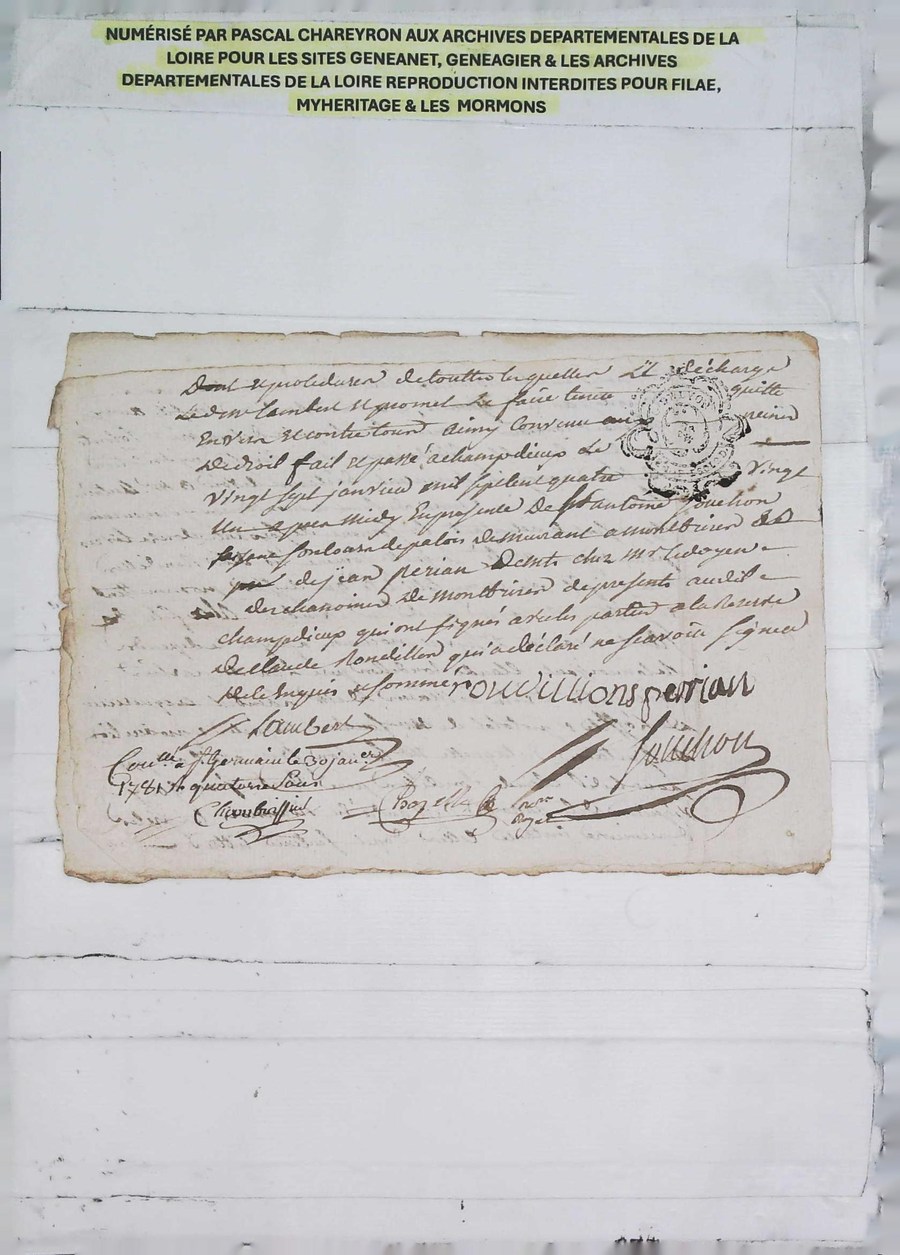 NUMÉRISÉ PAR PASCAL CHAREYRON AUX ARCHIVES DEPARTEMENTALES DE LA
LOIRE POUR LES SITES GENEANET, GENEAGIER & LES ARCHIVES
DEPARTEMENTALES DE LA LOIRE REPRODUCTION INTERDITES POUR FILAE,
MYHERITAGE & LES MORMONS
et procedures de touttes lesquelles il décharge
led. mr lambert et promet le faire tenir quitte
Envers et contre tous ainsy convenu peines
De droit fait et passé a champdieup le
vingt sept janvier mil sept cent quatre vingt
un apres midy En presence De St antoine Souchon
de palois demeurant a montbrison
de jean perian chez mr le doyen
des chanoines De montbrison de presents audit
champdieup qui ont signés avec les parties a la Reserve
De Claude Rondillon qui a déclaré ne scavoir signer
De ce Enquis et sommé rouvillions perrian
Lambert
Souchon
Conllé a St Germain le 30 janer
1781 Rt quatorze sous
Chazelle nore
Royal